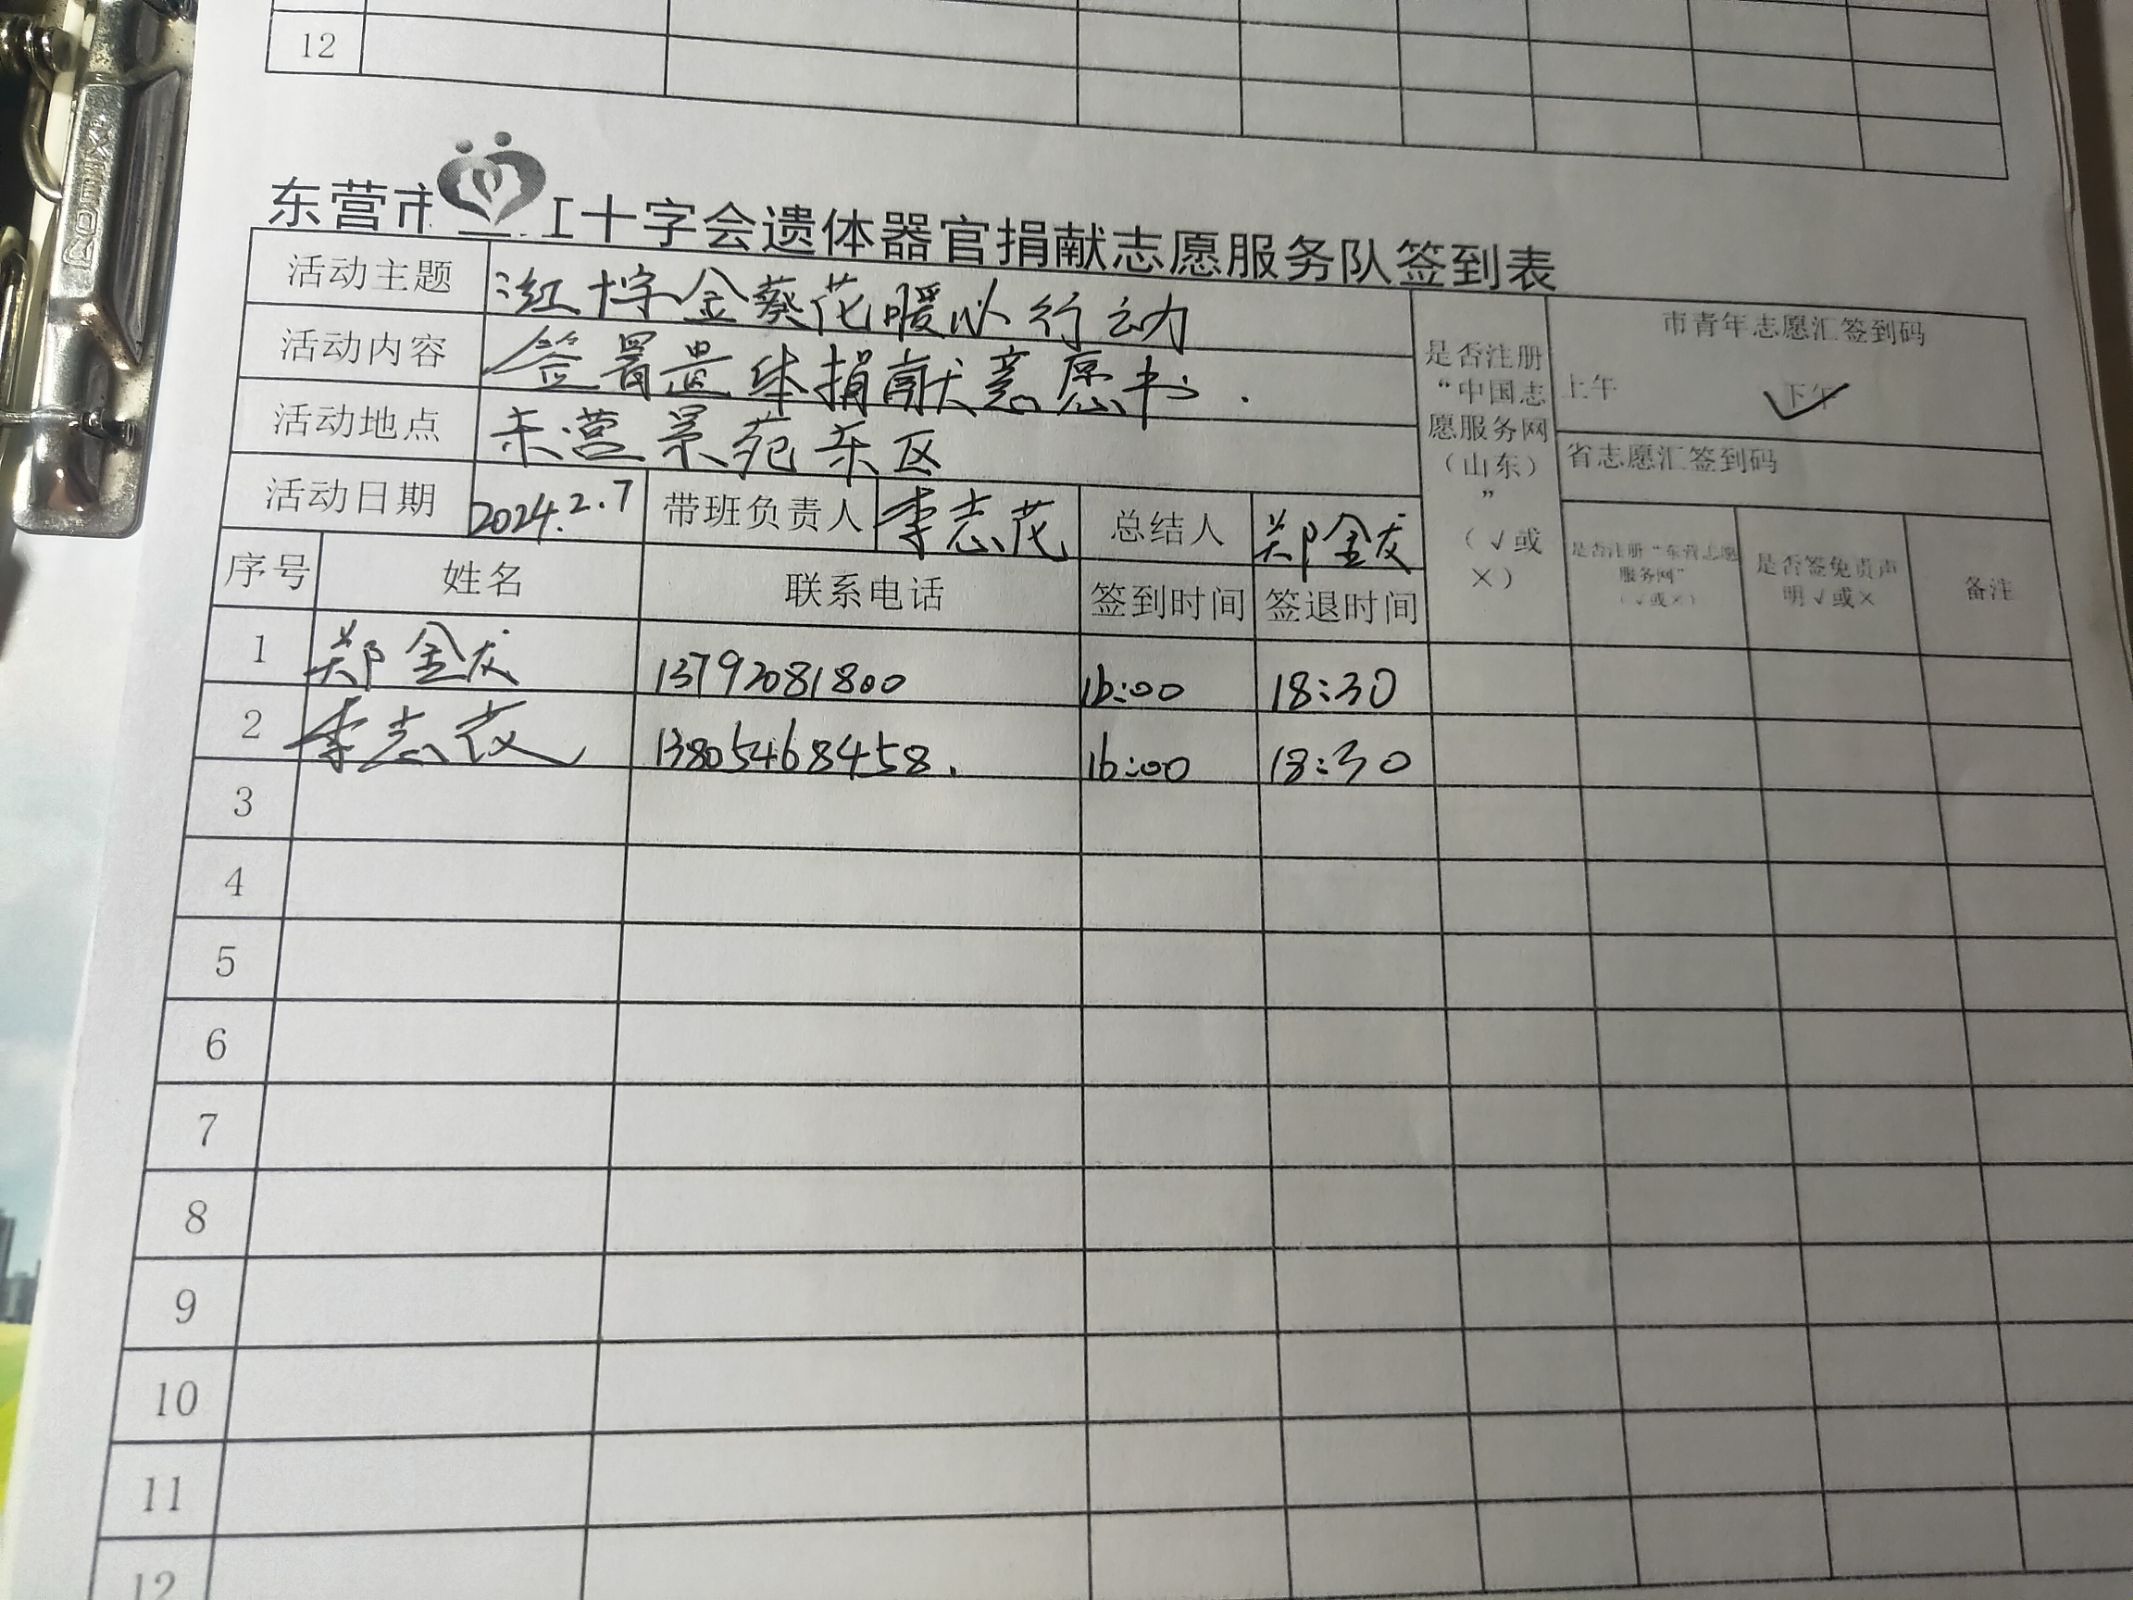 12
东营市 红十字会遗体器官捐献志愿服务队签到表
活动主题 红十字金葵花暖心行动
活动内容 签署遗体捐献意愿书.
活动地点 东营景苑东区
活动日期 2024.2.7 带班负责人 李志茂 总结人 郑金友
是否注册“中国志愿服务网（山东）”（√或×）
市青年志愿汇签到码
上午 下午 ✓
省志愿汇签到码
序号 姓名 联系电话 签到时间 签退时间 是否注册“东营志愿服务网”（√或×） 是否签免责声明√或× 备注
1 郑金友 13792081800 16:00 18:30
2 李志茂 13805468458. 16:00 18:30
3
4
5
6
7
8
9
10
11
12